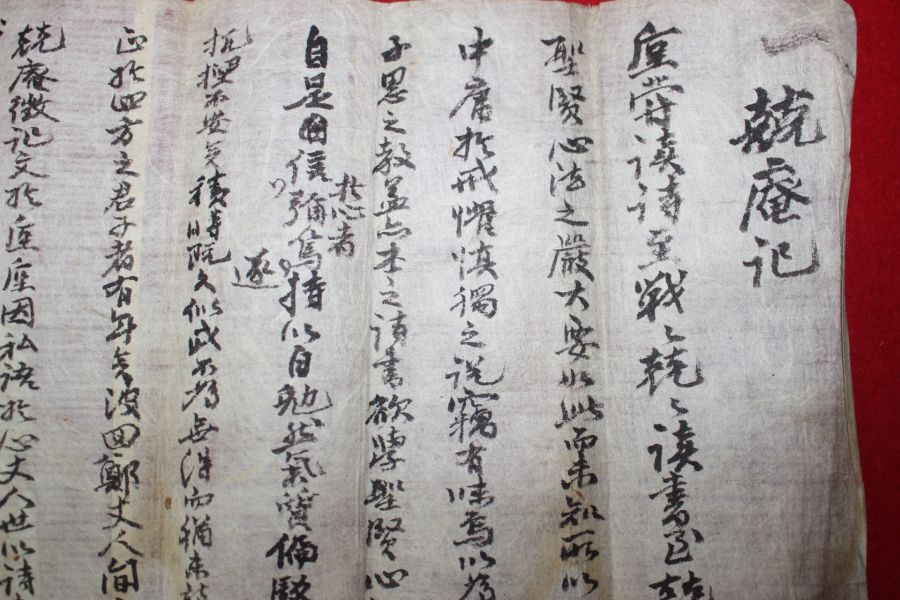 兢庵記
嘗读诗至戰〻兢〻读書至兢
聖賢心法之嚴大要以此而未知所以
中庸於戒懼慎獨之説竊有味焉以為
子思之教盖亦本之詩書欲學聖賢心
於心者
自是因信彌篤持以自勉然氣質偏駁
遂
不安矣積時既久似成而猶未
正於四方之君子者有年矣波回鄭丈人间
兢庵徵記文於因私語於心丈人世以詩